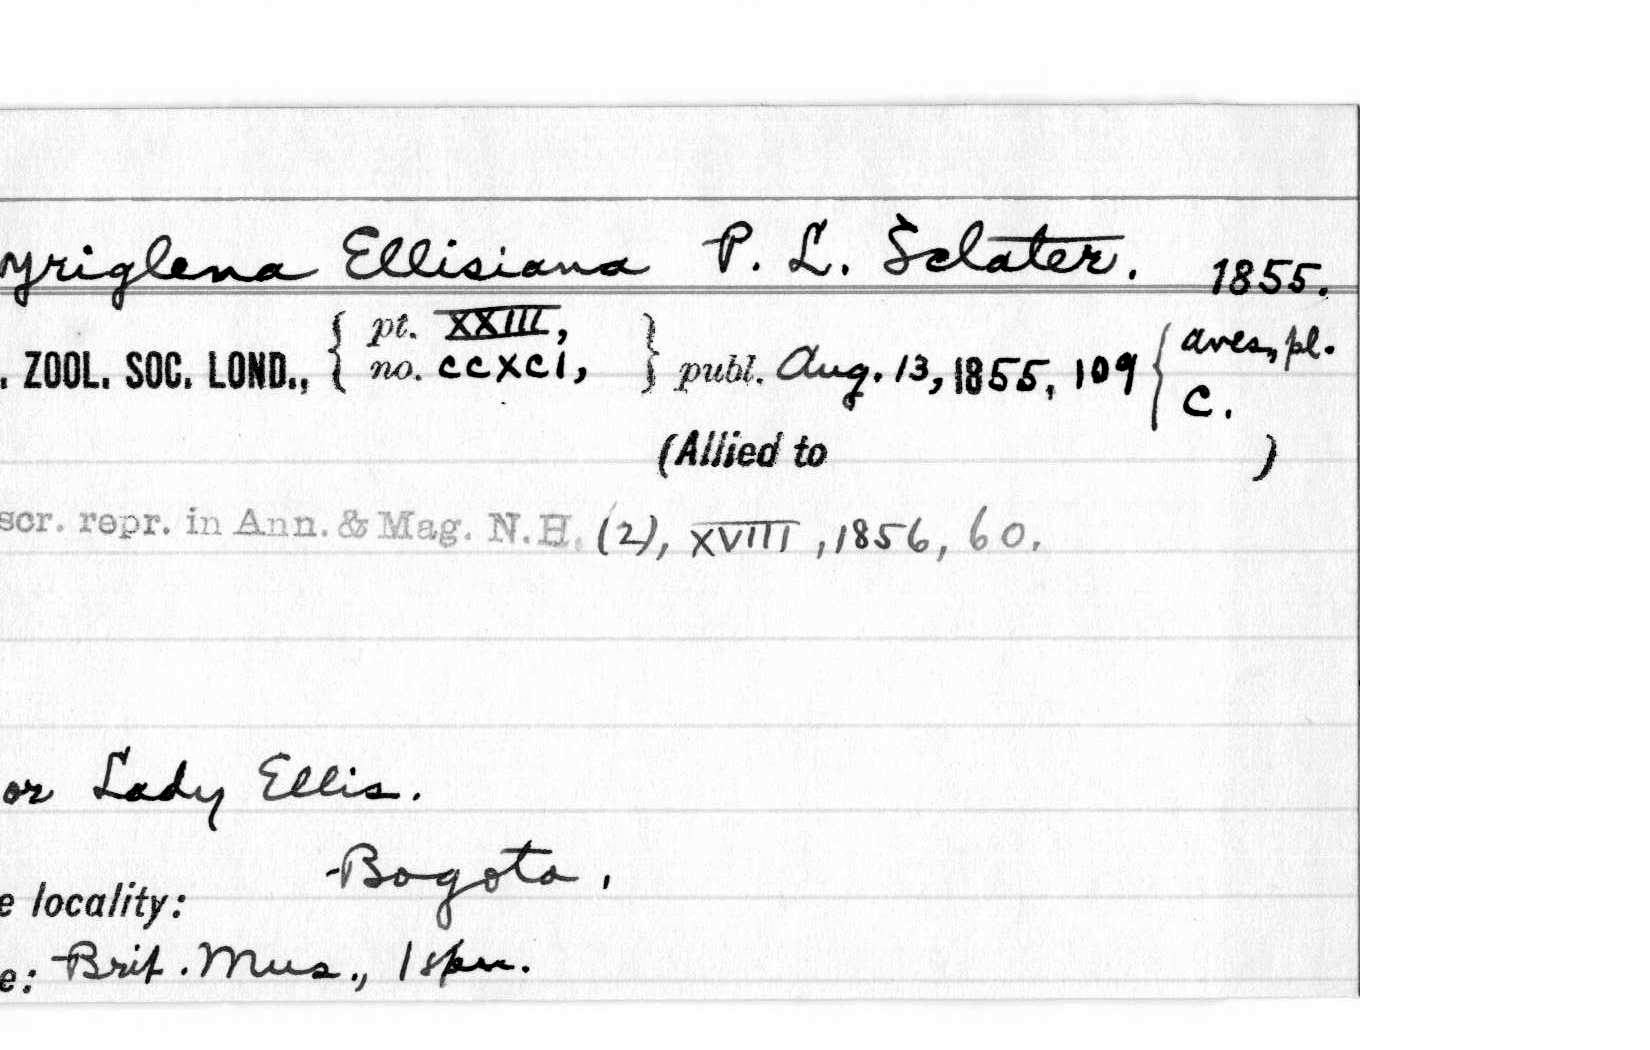 yriglena Ellisiana P. L. Sclater. 1855.
. ZOOL. SOC. LOND., { pt. XXIII, no. CCXCI, } publ. Aug. 13, 1855, 109 { aves, pl. C.
(Allied to )
scr. repr. in Ann. & Mag. N.H. (2), XVIII, 1856, 60.
or Lady Ellis.
Bogota,
e locality:
e: Brit. Mus., 1 spm.